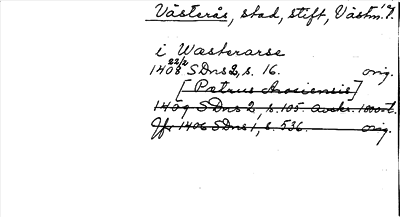 Västerås, stad, stift, Västm. l.
i Wæsterarse
1408 22/2 SDns 2, s. 16. orig.
[Petrus Arosiensis]
1409 SDns 2, s. 105. avskr.
Jfr 1406 SDns 1, s. 536. orig.